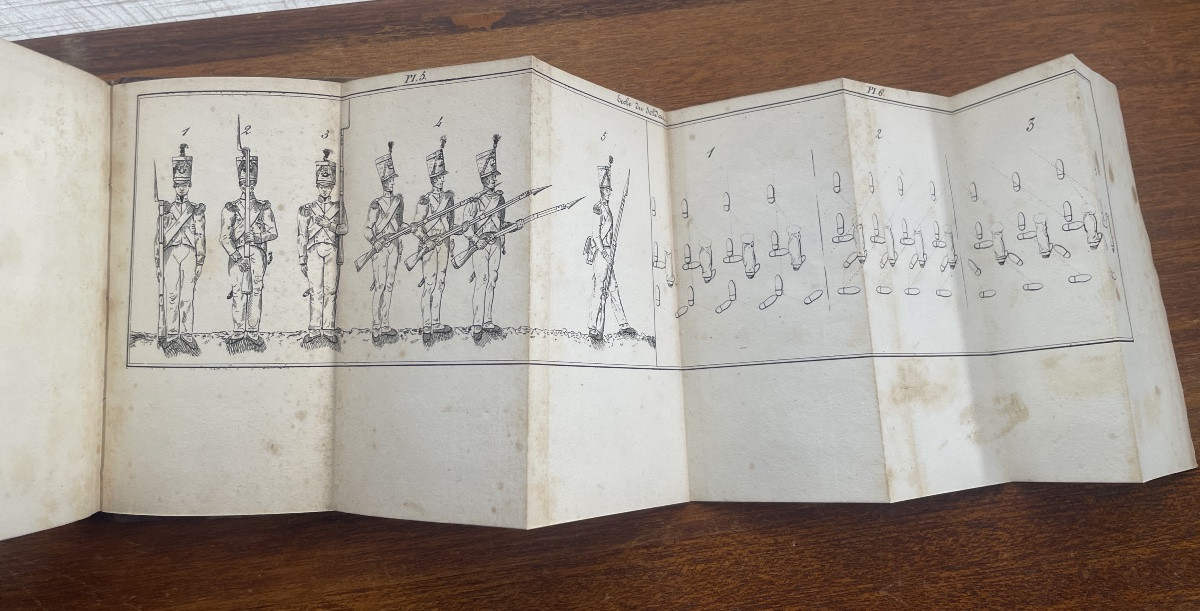 Pl. 5.
Ecole du Soldat
Pl 6.
1
2
3
4
5
1
2
3